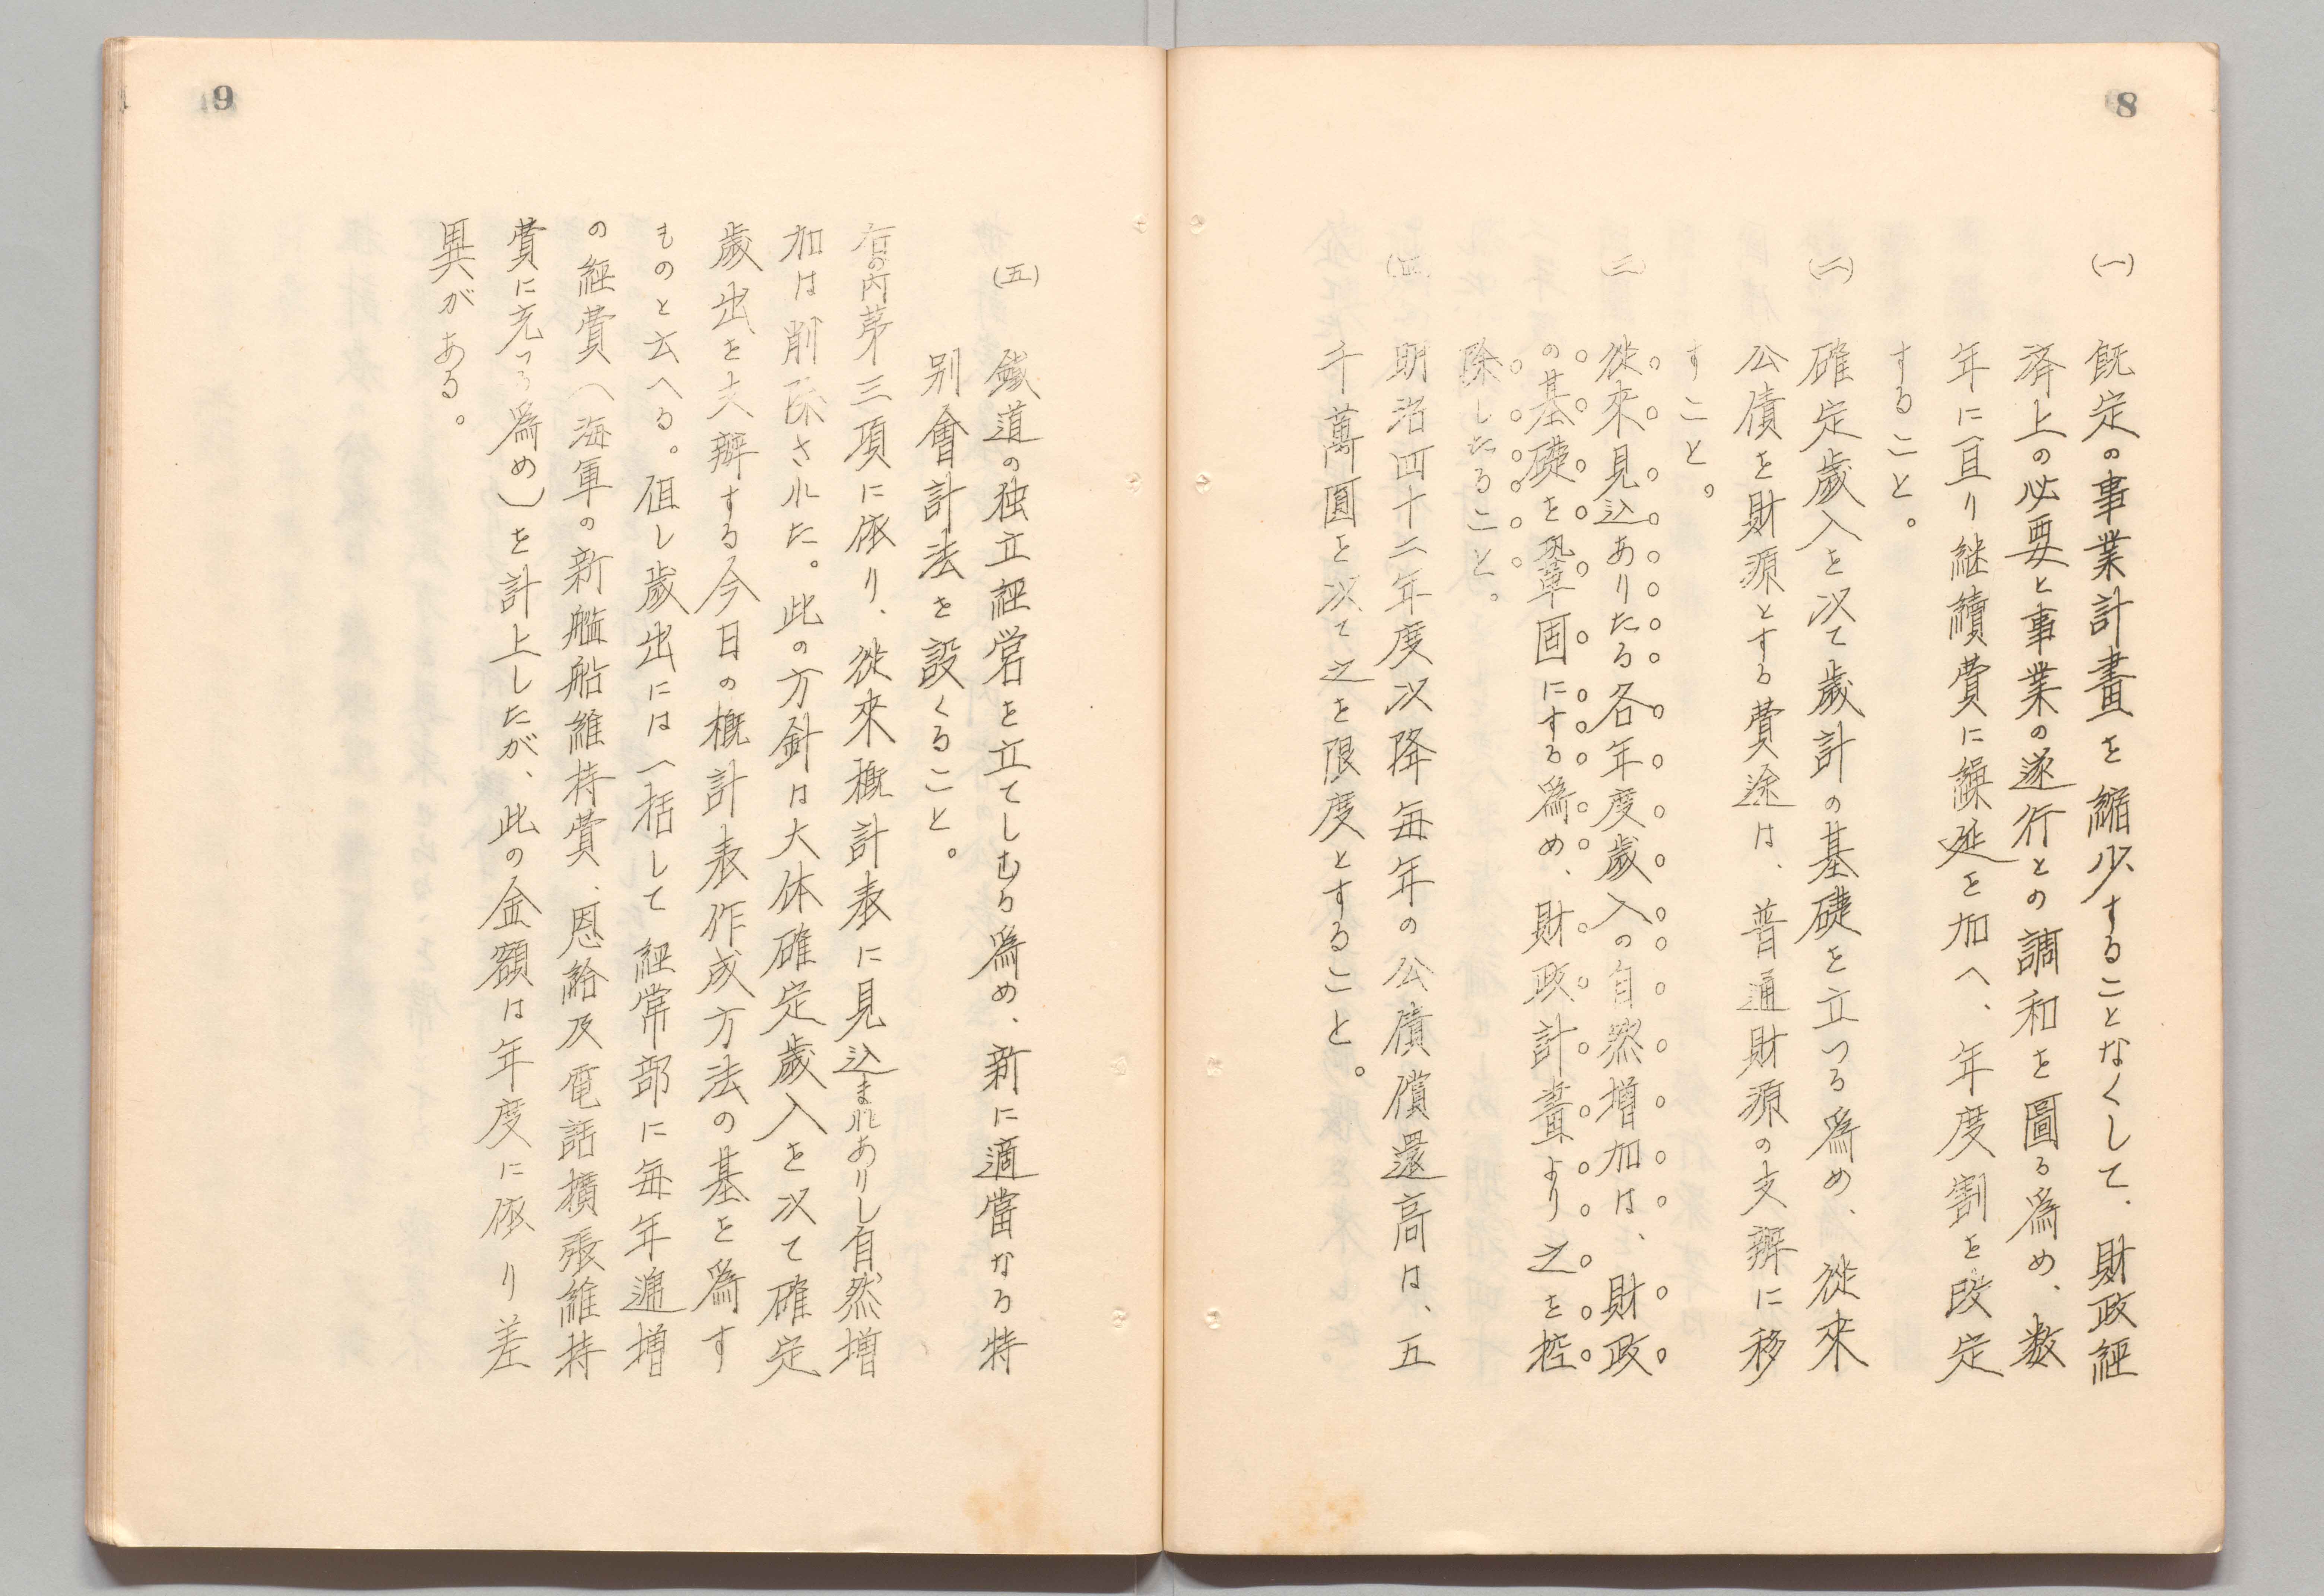 8
(一)
既定の事業計畫を縮少することなくして、財政經
済上の必要と事業の遂行との調和を圖る為め、数
年に亘り継續費に繰延を加へ、年度割を改定
すること。
(二)
確定歳入を以て歳計の基礎を立つる為め、従來
公債を財源とする費途は、普通財源の支辨に移
すこと。
(三)
従來見込ありたる各年度歳入の自然増加は、財政
の基礎を鞏固にする為め、財政計畫より之を控
除したること。
(四)
明治四十二年度以降毎年の公債償還高は、五
千萬圓を以て之を限度とすること。
9
(五)
鐵道の独立經営を立てしむる為め、新に適當なる特
別會計法を設くること。
右の内第三項に依り、従來概計表に見込まれありし自然増
加は削除された。此の方針は大体確定歳入を以て確定
歳出を支辨する今日の概計表作成方法の基を為す
ものと云へる。但し歳出には一括して經常部に毎年逓増
の經費(海軍の新艦船維持費、恩給及電話擴張維持
費に充つる為め)を計上したが、此の金額は年度に依り差
異がある。